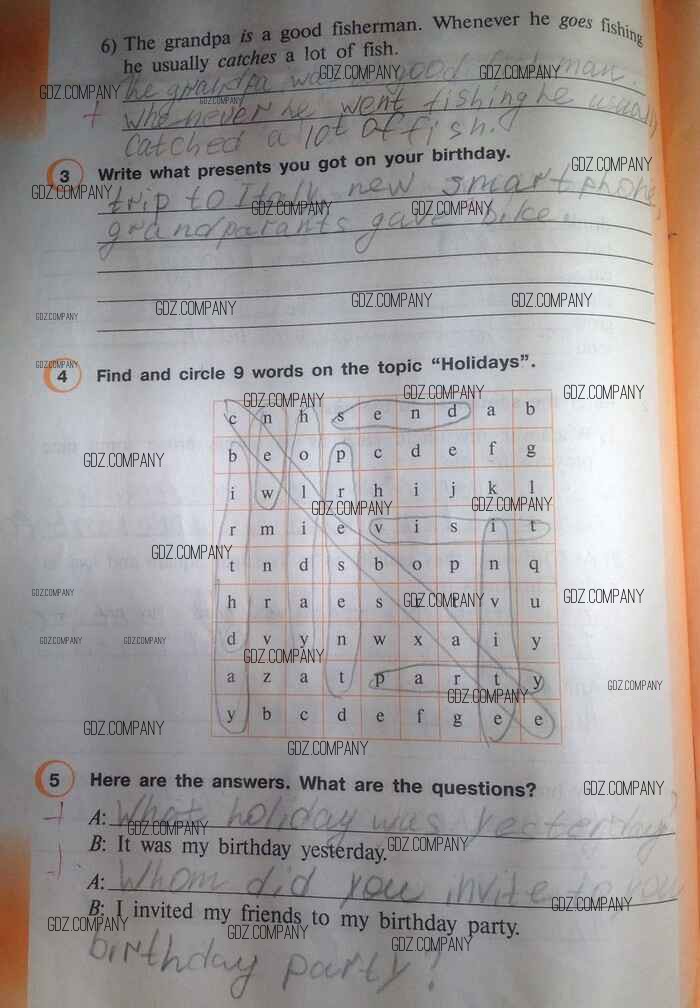 6) The grandpa is a good fisherman. Whenever he goes fishing
he usually catches a lot of fish.
he grandpa was a good fisherman.
whenever he went fishing he usually
catched a lot of fish.
3 Write what presents you got on your birthday.
trip to Italy, new smartphone,
grandparants gave bike.
4 Find and circle 9 words on the topic “Holidays”.
c n h s e n d a b
b e o p c d e f g
i w l r h i j k l
r m i e v i s i t
t n d s b o p n q
h r a e s t v u
d v y n w x a i y
a z a t p a r t y
y b c d e f g e e
5 Here are the answers. What are the questions?
A: What holiday was yesterday?
B: It was my birthday yesterday.
A: Whom did you invite to you
B: I invited my friends to my birthday party.
birthday party?
GDZ.COMPANY